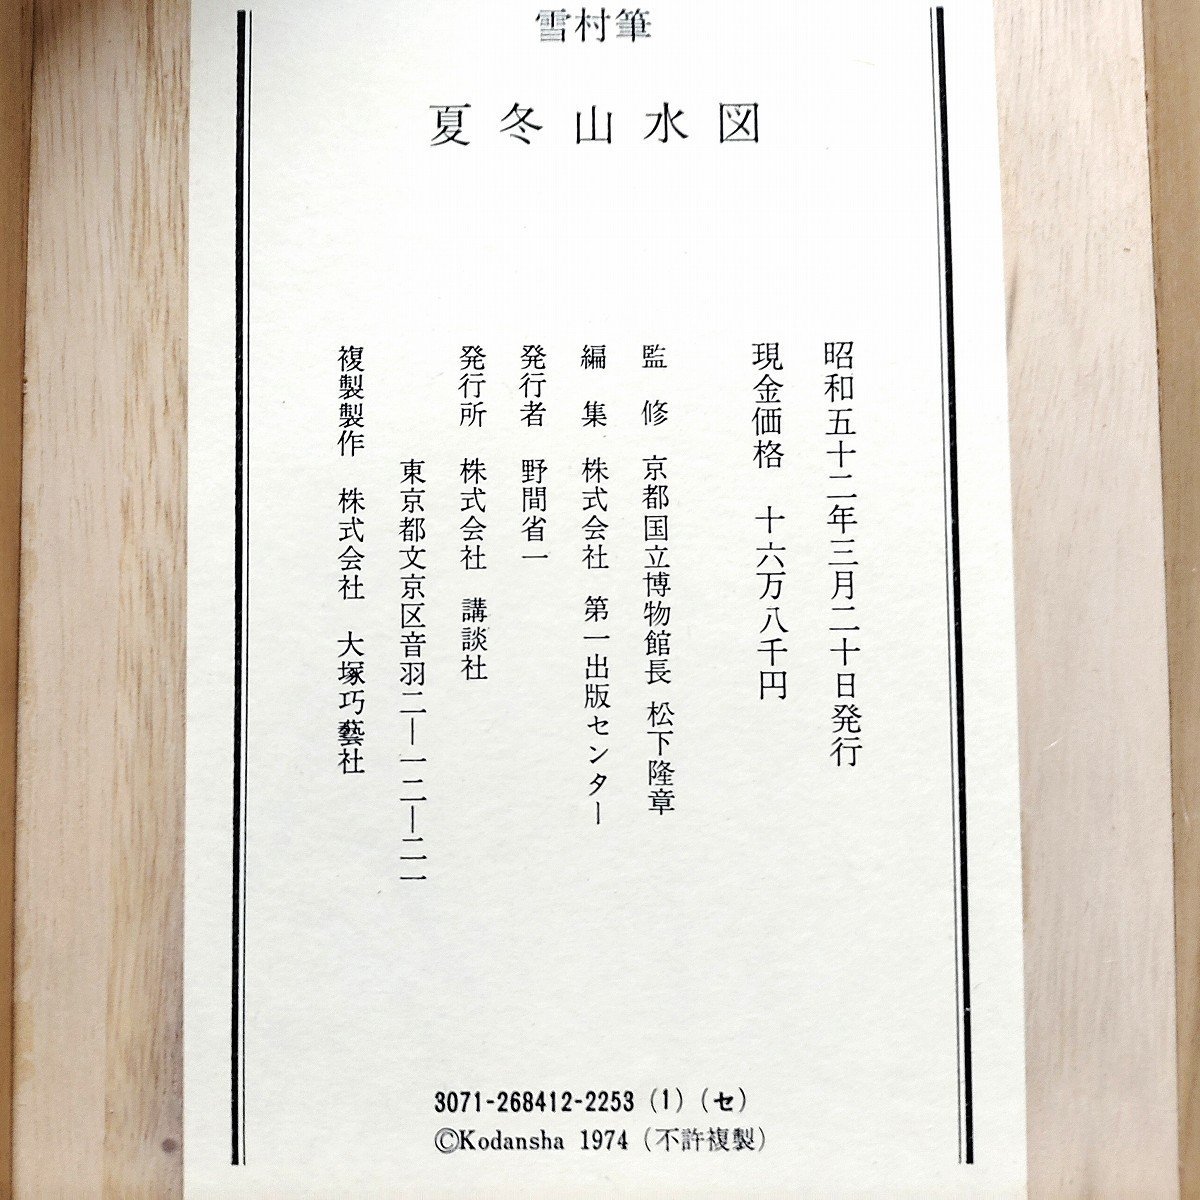 雪村筆
夏冬山水図
昭和五十二年三月二十日発行
現金価格 十六万八千円
監修 京都国立博物館長 松下隆章
編集 株式会社 第一出版センター
発行者 野間省一
発行所 株式会社 講談社
東京都文京区音羽二―一二―二一
複製製作 株式会社 大塚巧藝社
3071-268412-2253 (1) (セ)
©Kodansha 1974 (不許複製)